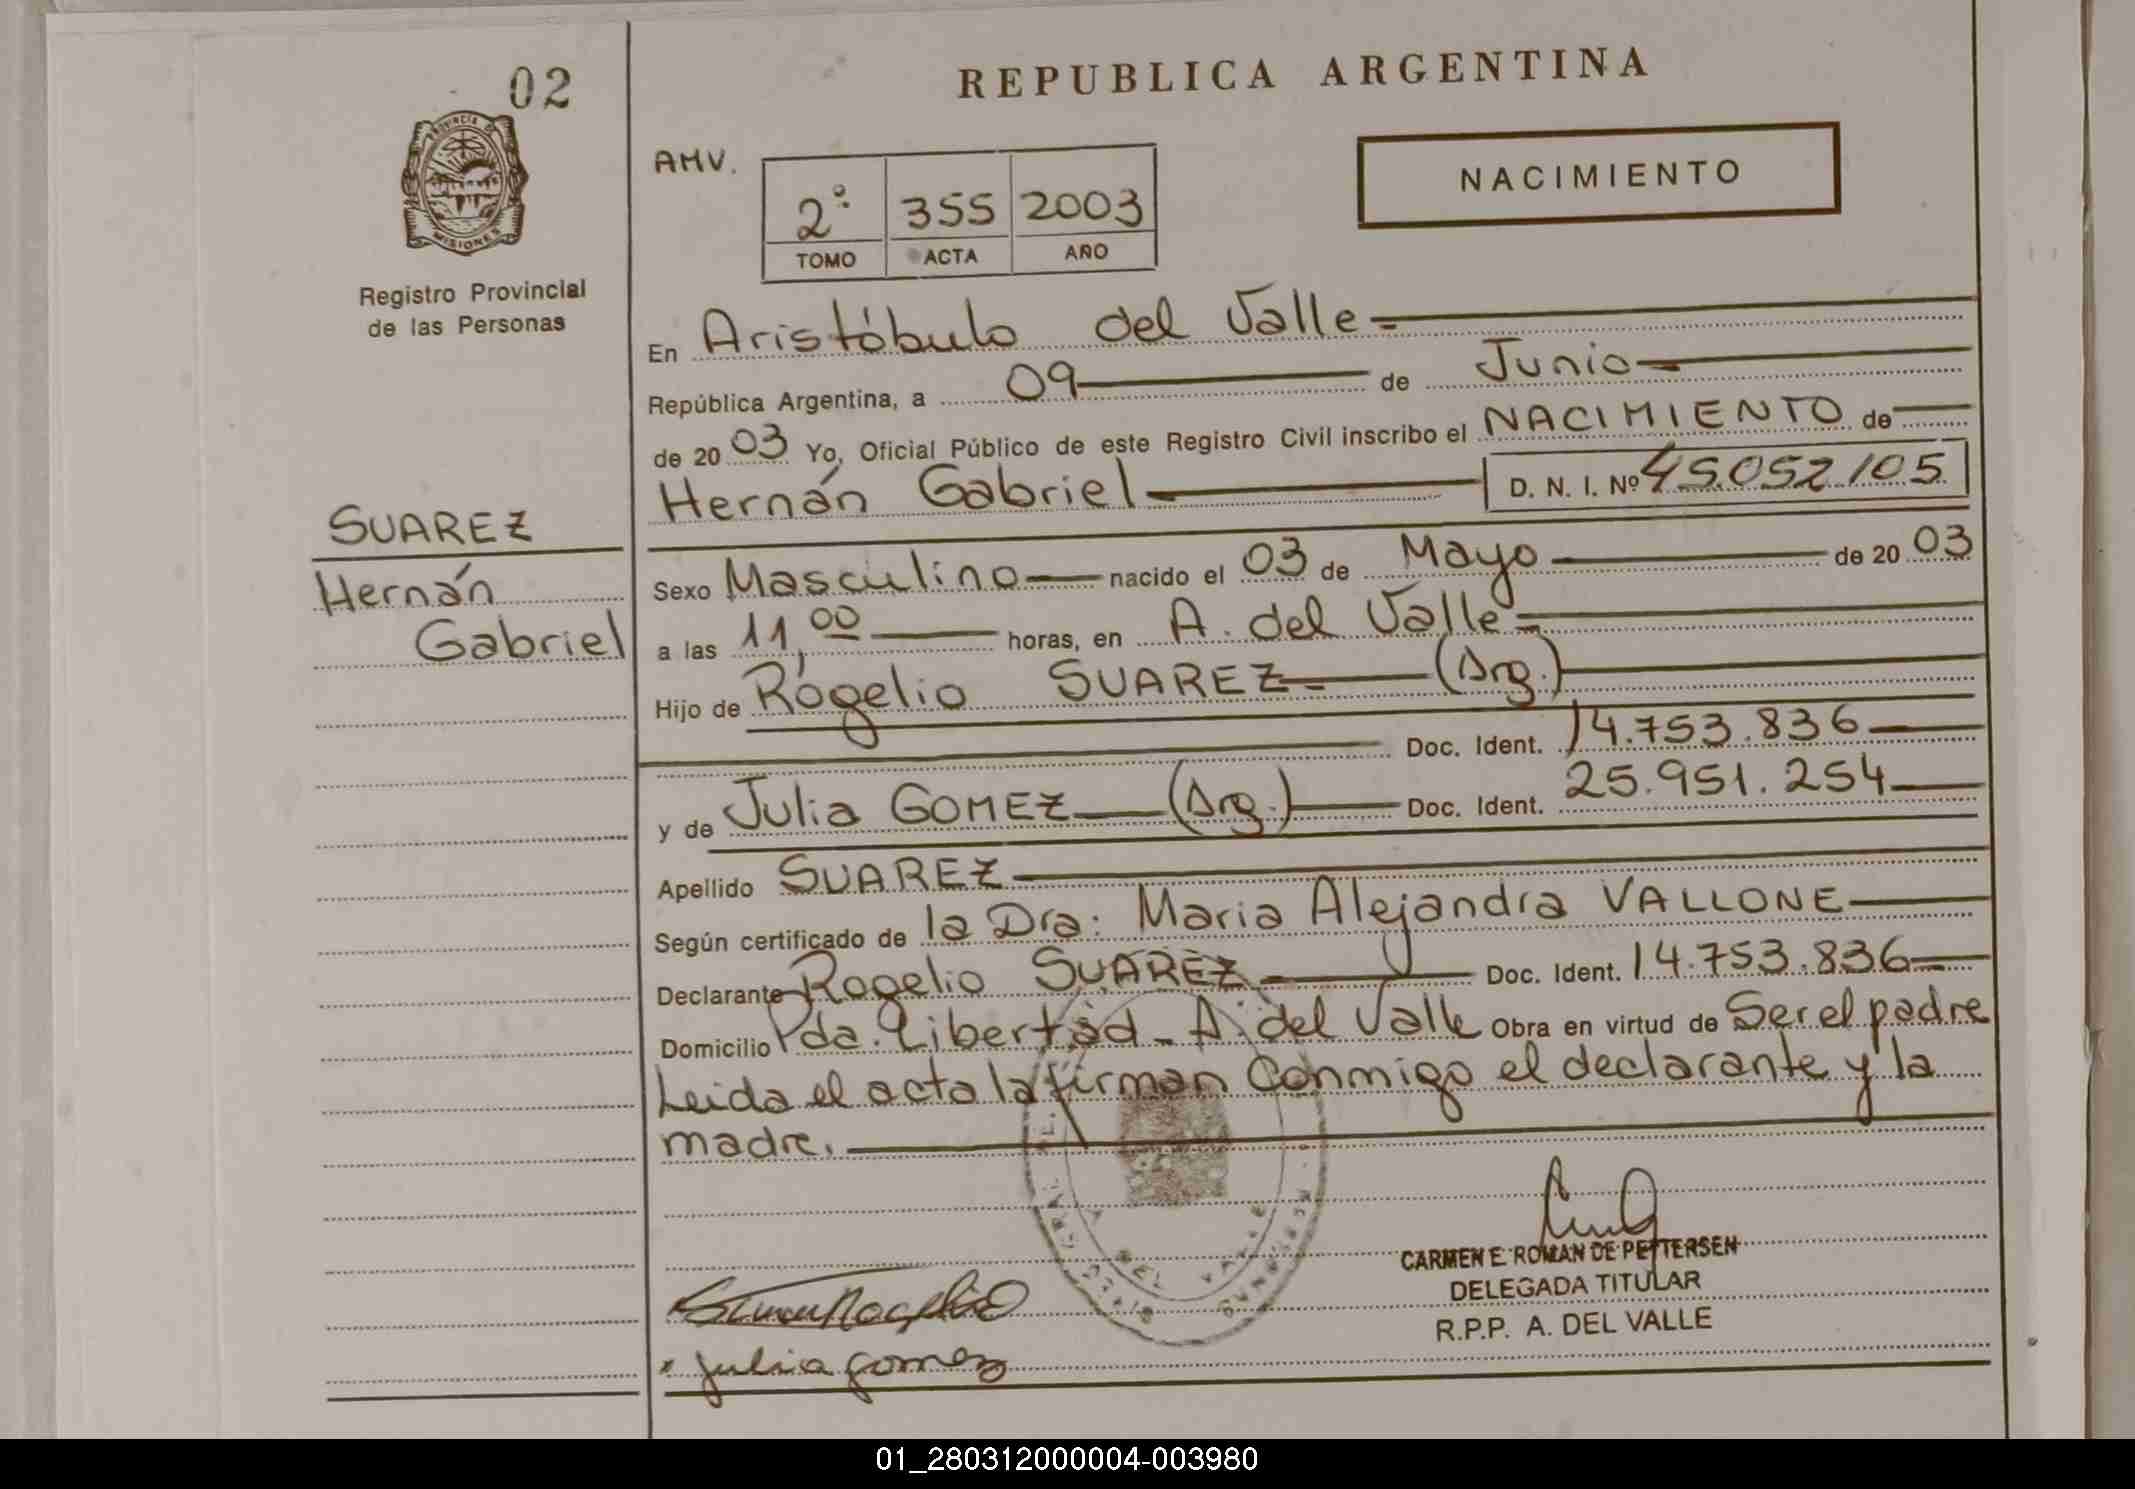 02
PROVINCIA DE
MISIONES
Registro Provincial
de las Personas
SUAREZ
Hernán
Gabriel
REPUBLICA ARGENTINA
AMV.
2º 355 2003
TOMO ACTA AÑO
NACIMIENTO
En Aristóbulo del Valle
República Argentina, a 09 de Junio
de 2003 Yo, Oficial Público de este Registro Civil inscribo el NACIMIENTO de
Hernán Gabriel D. N. I. Nº 45.052105
Sexo Masculino nacido el 03 de Mayo de 2003
a las 11,00 horas, en A. del Valle
Hijo de Rogelio SUAREZ (Arg.)
Doc. Ident. 14.753.836
y de Julia GOMEZ (Arg.) Doc. Ident. 25.951.254
Apellido SUAREZ
Según certificado de la Dra: Maria Alejandra VALLONE
Declarante Rogelio SUAREZ Doc. Ident. 14.753.836
Domicilio Pda. Libertad - A. del Valle Obra en virtud de Ser el padre
Leida el acta la firman Conmigo el declarante y la
madre.
CARMEN E. ROMAN DE PETTERSEN
DELEGADA TITULAR
R.P.P. A. DEL VALLE
Julia gomez
01_280312000004-003980